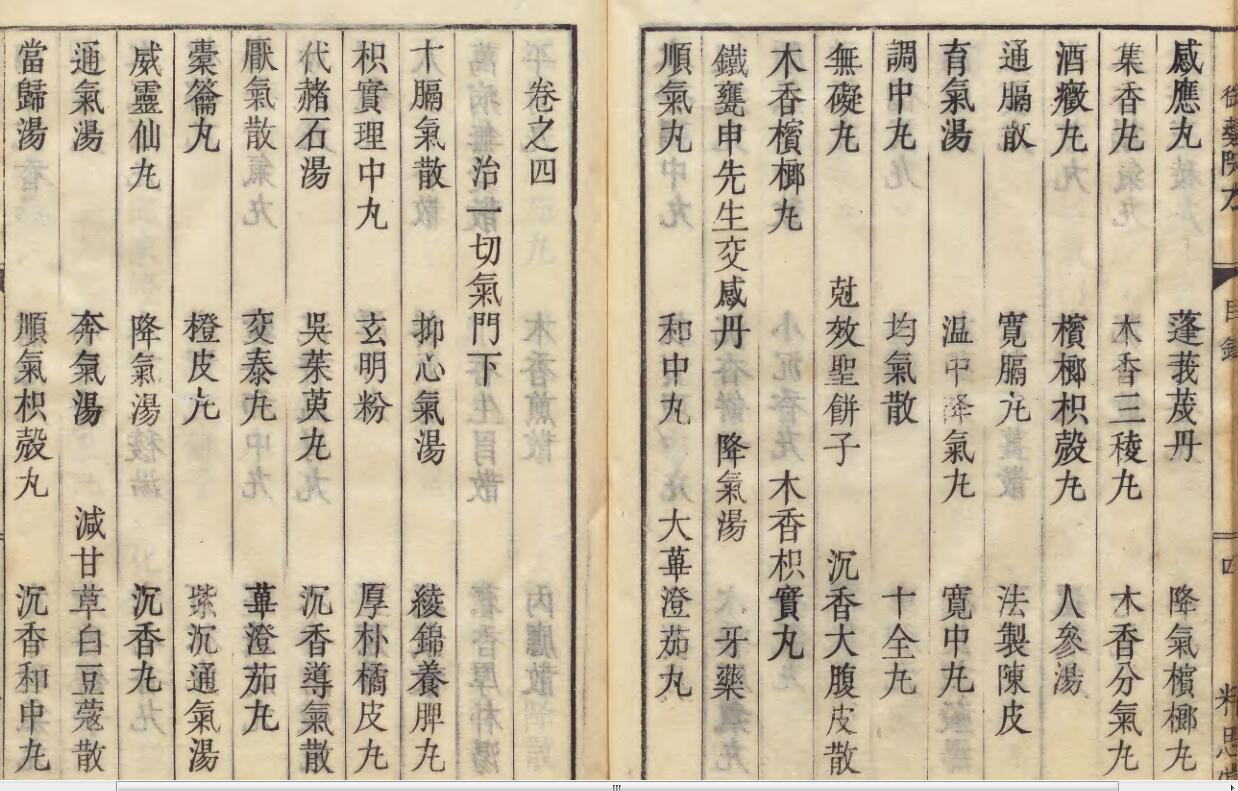 御藥院方 目錄 四 精思堂
感應丸 蓬莪茂丹 降氣檳榔丸
集香丸 木香三稜丸 木香分氣丸
酒癥丸 檳榔枳殼丸 人參湯
通膈散 寬膈丸 法製陳皮
育氣湯 温中降氣丸 寬中丸
調中丸 均氣散 十全丸
無礙丸 尅效聖餅子 沉香大腹皮散
木香檳榔丸 木香枳實丸
鐵甕申先生交感丹 降氣湯 牙藥
順氣丸 和中丸 大蓽澄茄丸
卷之四
治一切氣門下
十膈氣散 抑心氣湯 綾錦養脾丸
枳實理中丸 玄明粉 厚朴橘皮丸
代赭石湯 吳茱萸丸 沉香導氣散
厭氣散 交泰丸 蓽澄茄丸
橐籥丸 橙皮丸 紫沉通氣湯
威靈仙丸 降氣湯 沉香丸
通氣湯 奔氣湯 減甘草白豆蔻散
當歸湯 順氣枳殼丸 沉香和中丸